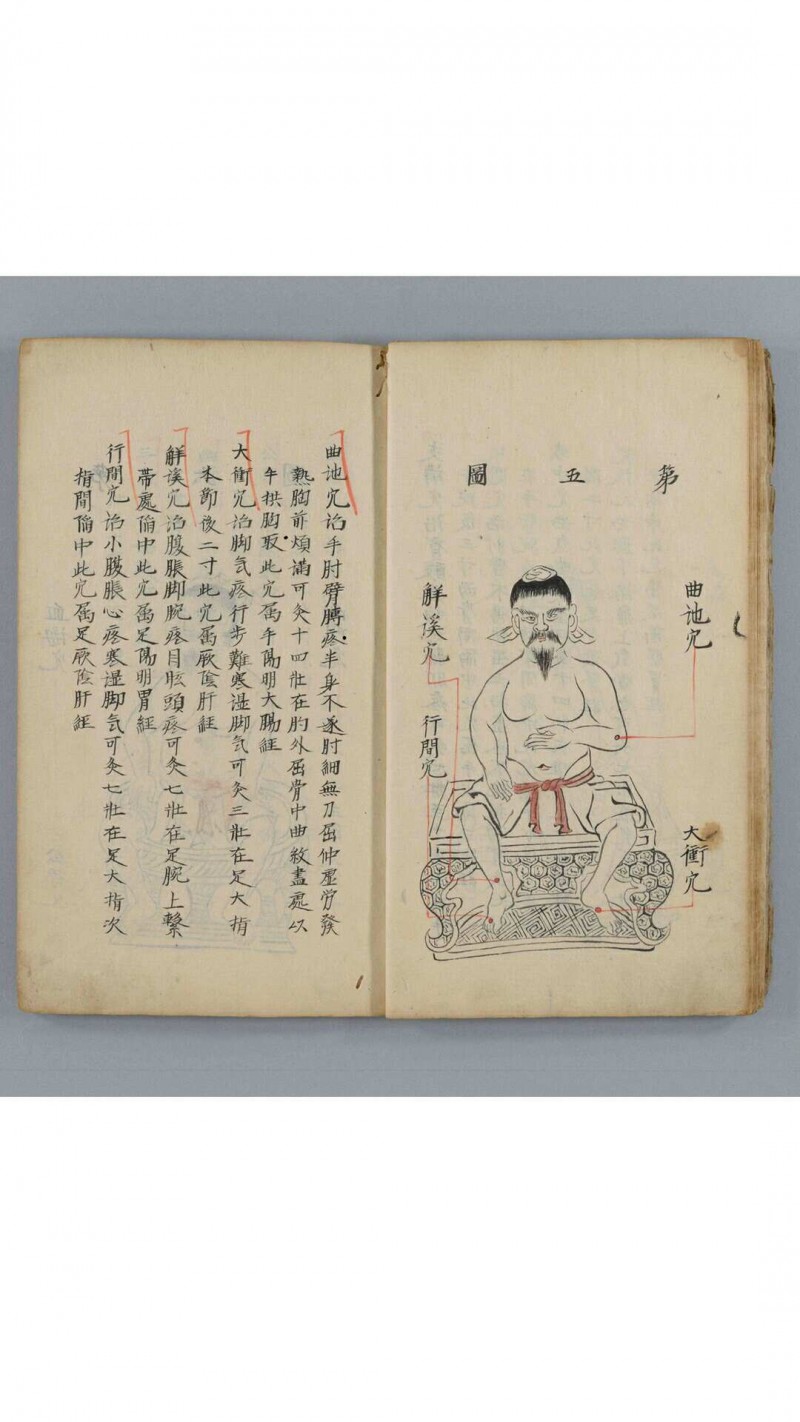 苐五圖
曲池穴
大衝穴
觧溪穴
行間穴
曲池穴治手肘臂膊疼半身不遂肘細無力屈伸虛勞發
熱胸前煩滿可灸十四壯在肘外屈骨中曲紋盡處以
手拱胸取此穴屬手陽明大腸經
大衝穴治脚氣疼行步難寒濕脚氣可灸三壯在足大指
本節後二寸此穴屬厥陰肝經
觧溪穴治腹脹脚腕疼目眩頭疼可灸七壯在足腕上繫
帶處陷中此穴屬足陽明胃經
行間穴治小腹脹心疼寒濕脚氣可灸七壯在足大指次
指間陷中此穴屬足厥陰肝經